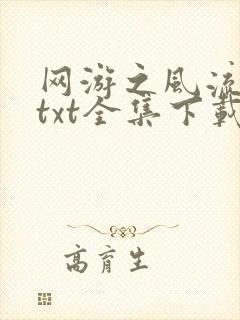 网游之风流
txt全集下载
高育生